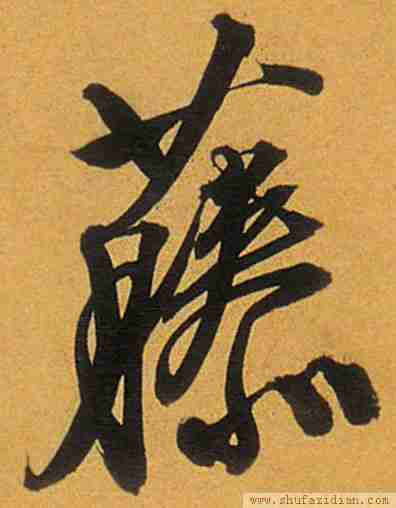 藤
www.shufazidian.com